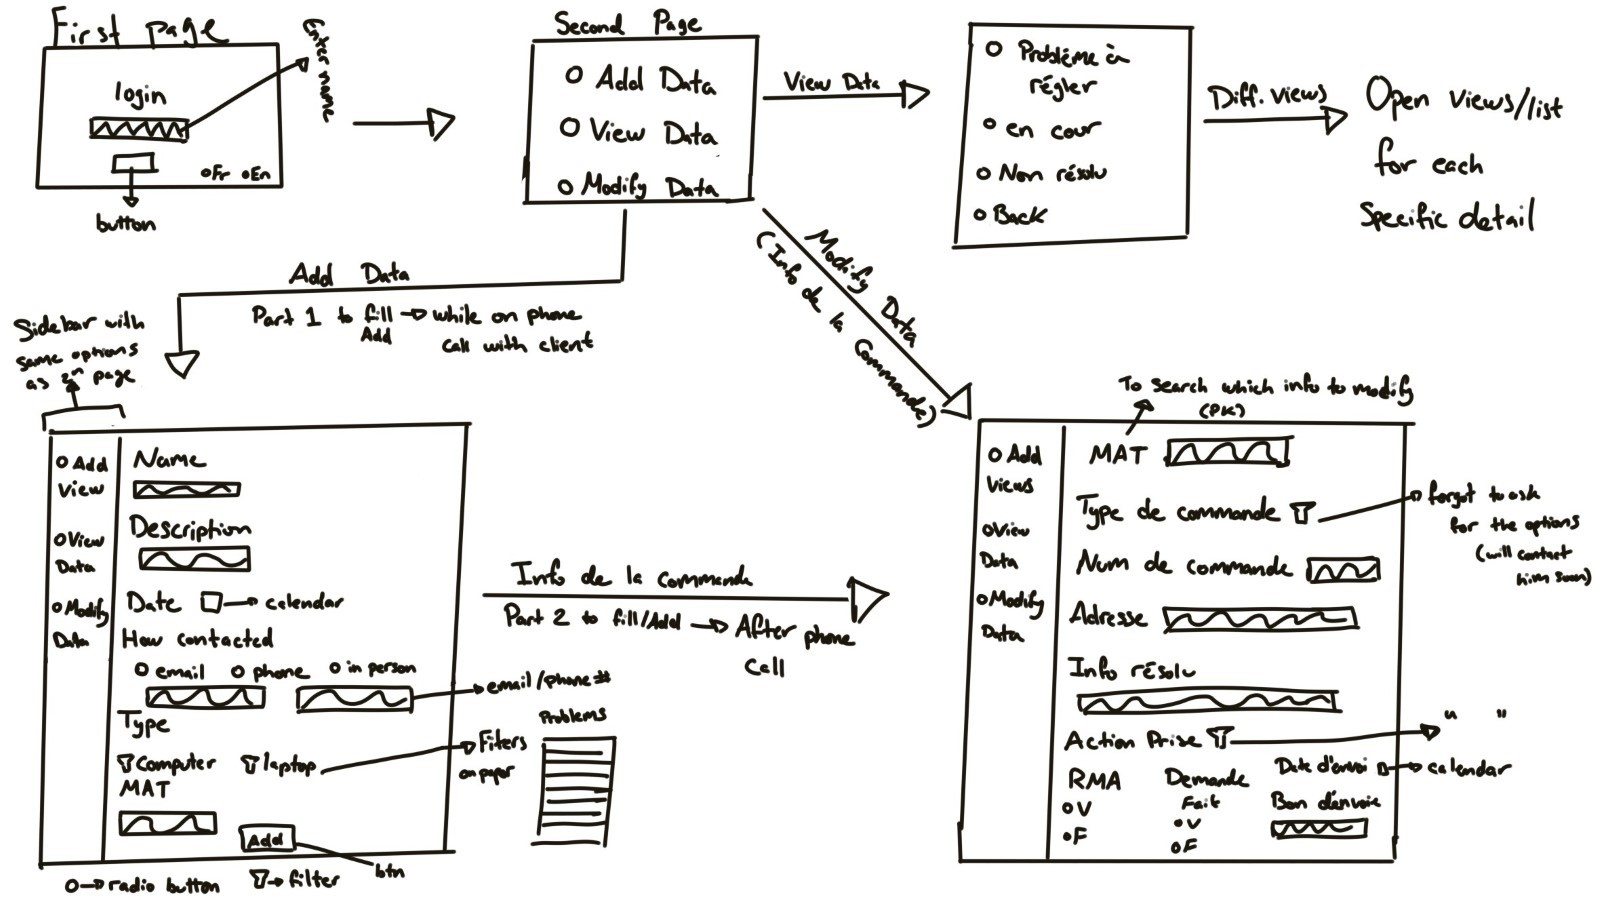 First page
Enter name
login
Fr En
button
Second Page
Add Data
View Data
Modify Data
View Data
Problème à
régler
en cour
Non résolu
Back
Diff. views
Open views/list
for each
Specific detail
Add Data
Part 1 to fill → while on phone
Add call with client
Modify Data
(Info de la Commande)
Sidebar with
same options
as 2nd page
Add
View
View
Data
Modify
Data
Name
Description
Date → calendar
How contacted
email phone in person
email/phone#
Type
Computer laptop
Filters
on paper
Problems
MAT
Add
btn
→ radio button → filter
Info de la commande
Part 2 to fill/Add → After phone
call
To search which info to modify
(PK)
Add
Views
View
Data
Modify
Data
MAT
Type de commande
forgot to ask
for the options
(will contact
him soon)
Num de commande
Adresse
Info résolu
Action Prise
" "
RMA
V
F
Demande
Fait
V
F
Date d'envoi → calendar
Bon d'envoie